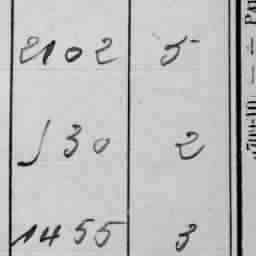 2102 5
530 2
1455 3